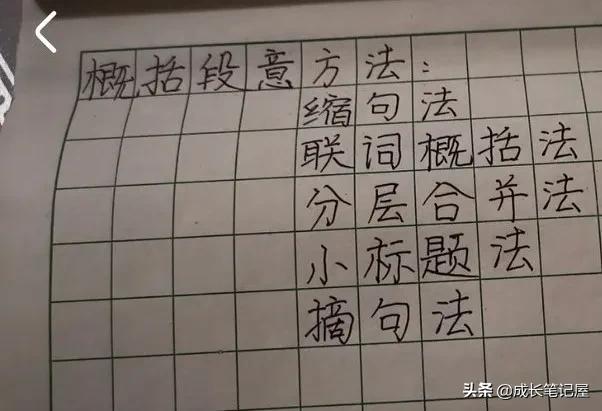 概括段意方法：
缩句法
联词概括法
分层合并法
小标题法
摘句法
头条 @成长笔记屋